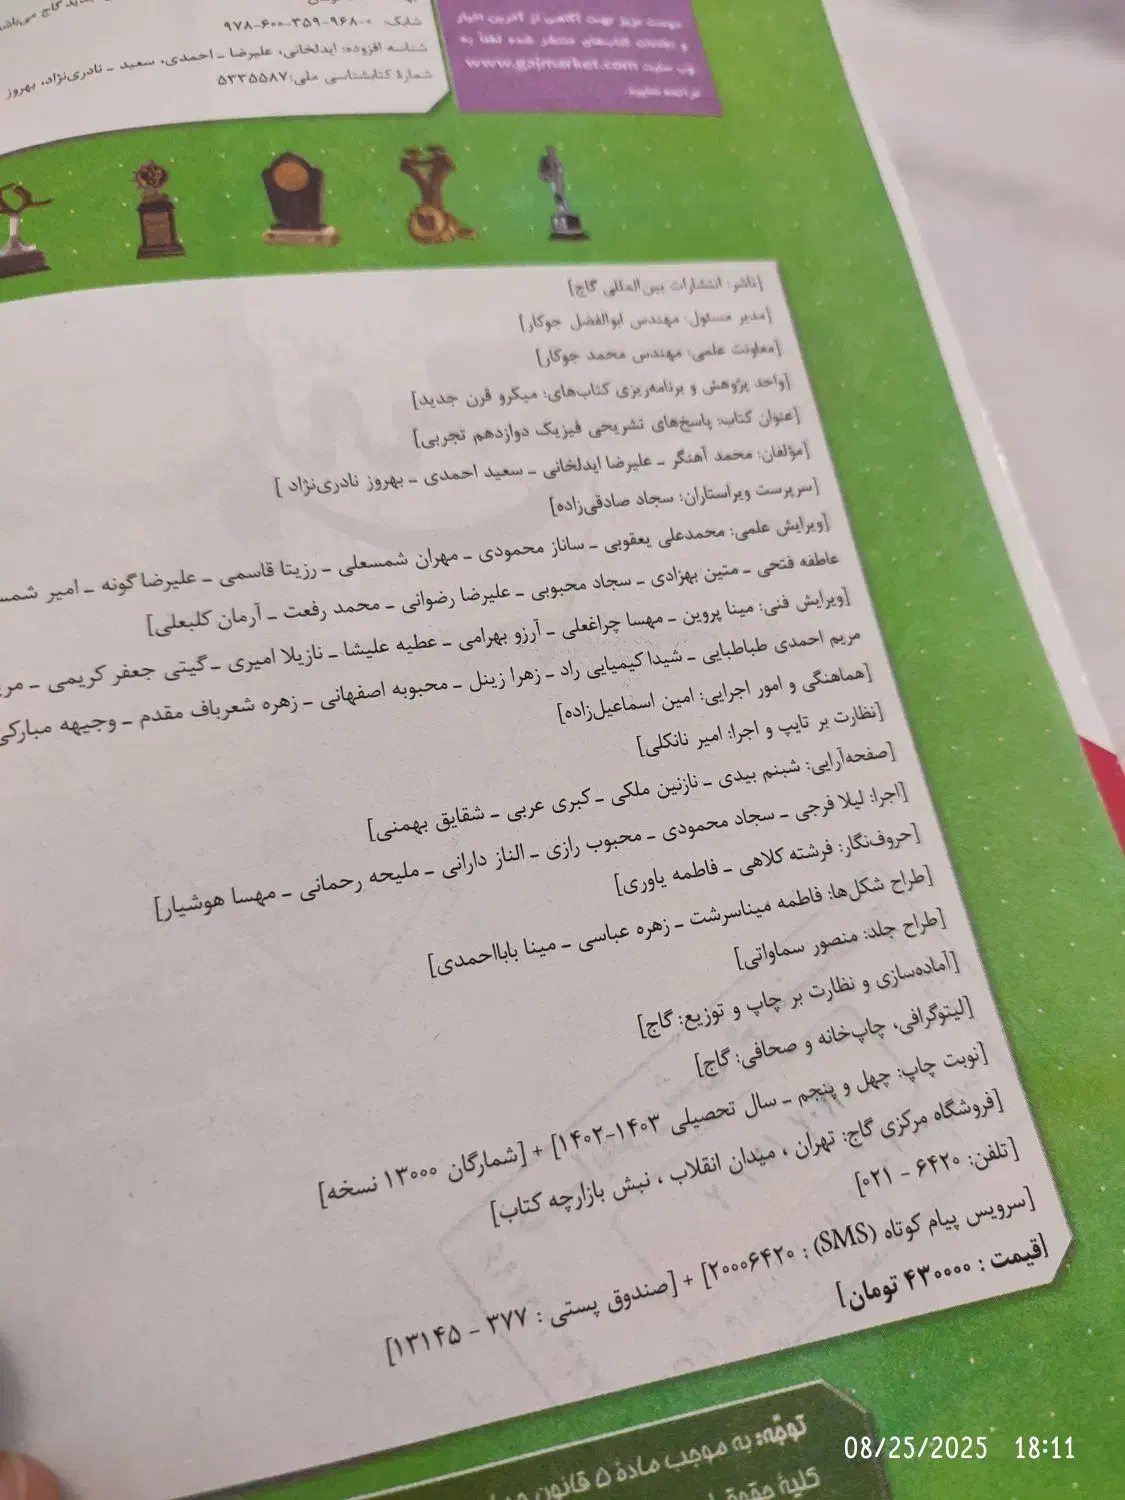 شابک: ۰-۹۶۸-۳۵۹-۶۰۰-۹۷۸
شناسه افزوده: ایدلخانی، علیرضا ـ احمدی، سعید ـ نادری‌نژاد، بهروز
شمارهٔ کتابشناسی ملی: ۵۳۳۵۵۸۷
دوست عزیز جهت آگاهی از آخرین اخبار
و کتاب‌های منتشر شده لطفاً به
وب سایت www.gajmarket.com
مراجعه نمایید.
[ناشر: انتشارات بین‌المللی گاج]
[مدیر مسئول: مهندس ابوالفضل جوکار]
[معاونت علمی: مهندس محمد جوکار]
[واحد پژوهش و برنامه‌ریزی کتاب‌های: میکرو قرن جدید]
[عنوان کتاب: پاسخ‌های تشریحی فیزیک دوازدهم تجربی]
[مؤلفان: محمد آهنگر ـ علیرضا ایدلخانی ـ سعید احمدی ـ بهروز نادری‌نژاد ]
[سرپرست ویراستاران: سجاد صادقی‌زاده]
[ویرایش علمی: محمدعلی یعقوبی ـ ساناز محمودی ـ مهران شمسعلی ـ رزیتا قاسمی ـ علیرضا گونه ـ امیر
عاطفه فتحی ـ متین بهزادی ـ سجاد محبوبی ـ علیرضا رضوانی ـ محمد رفعت ـ آرمان کلبعلی]
[ویرایش فنی: مینا پروین ـ مهسا چراغعلی ـ آرزو بهرامی ـ عطیه علیشا ـ نازیلا امیری ـ گیتی جعفر کریمی ـ
مریم احمدی طباطبایی ـ شیدا کیمیایی راد ـ زهرا زینل ـ محبوبه اصفهانی ـ زهره شعرباف مقدم ـ وجیهه مبارکی
[هماهنگی و امور اجرایی: امین اسماعیل‌زاده]
[نظارت بر تایپ و اجرا: امیر نانکلی]
[صفحه‌آرایی: شبنم بیدی ـ نازنین ملکی ـ کبری عربی ـ شقایق بهمنی]
[اجرا: لیلا فرجی ـ سجاد محمودی ـ محبوب رازی ـ الناز دارانی ـ ملیحه رحمانی ـ مهسا هوشیار]
[حروف‌نگار: فرشته کلاهی ـ فاطمه یاوری]
[طراح شکل‌ها: فاطمه میناسرشت ـ زهره عباسی ـ مینا بابااحمدی]
[طراح جلد: منصور سماواتی]
[آماده‌سازی و نظارت بر چاپ و توزیع: گاج]
[لیتوگرافی، چاپ‌خانه و صحافی: گاج]
[نوبت چاپ: چهل و پنجم ـ سال تحصیلی ۱۴۰۳-۱۴۰۲] + [شمارگان ۱۳۰۰۰ نسخه]
[فروشگاه مرکزی گاج: تهران ، میدان انقلاب ، نبش بازارچه کتاب]
[تلفن: ۶۴۲۰ - ۰۲۱]
[سرویس پیام کوتاه (SMS) : ۲۰۰۰۶۴۲۰] + [صندوق پستی : ۳۷۷ - ۱۳۱۴۵]
[قیمت : ۴۳۰۰۰۰ تومان]
توجّه: به موجب مادهٔ ۵ قانون
کلیهٔ حقوق
08/25/2025 18:11